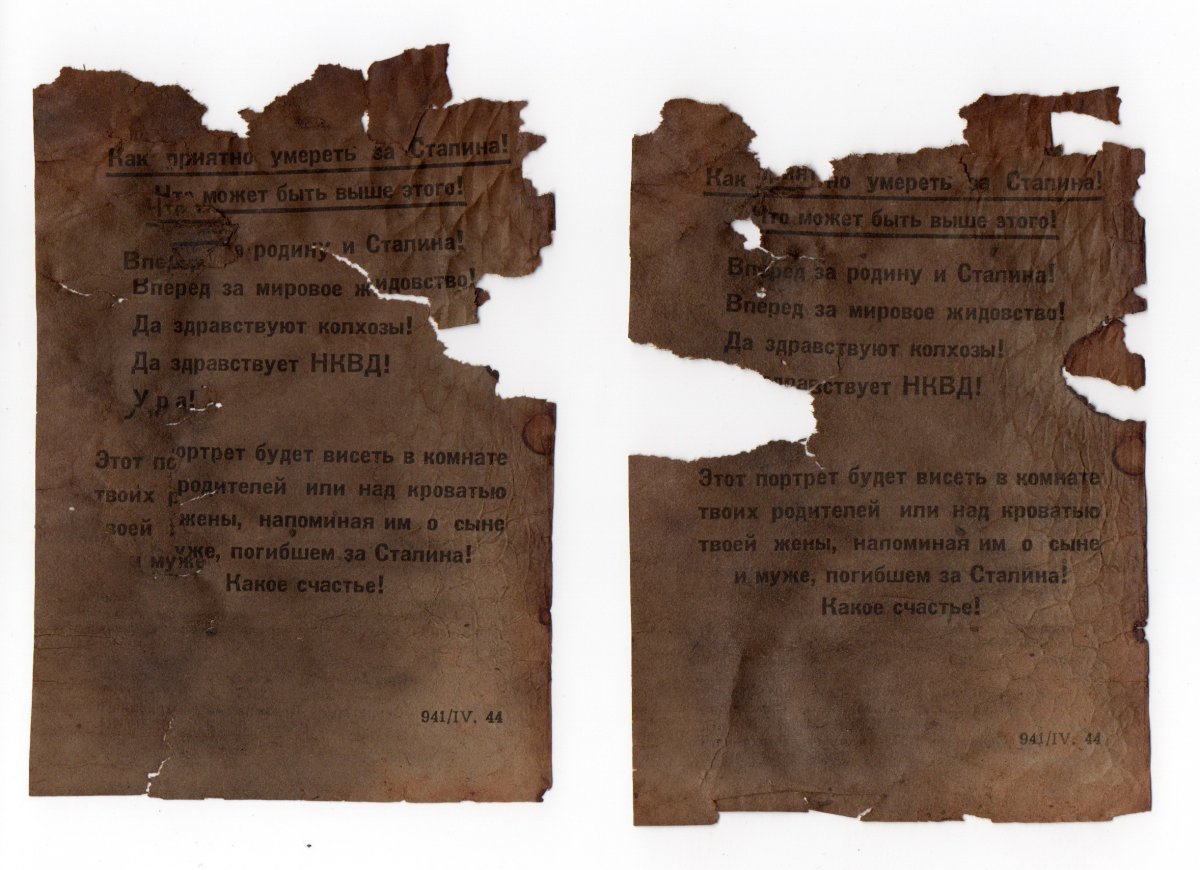 Как приятно умереть за Сталина!
Что может быть выше этого!
Вперед за родину и Сталина!
Вперед за мировое жидовство!
Да здравствуют колхозы!
Да здравствует НКВД!
Ура!
Этот портрет будет висеть в комнате
твоих родителей или над кроватью
твоей жены, напоминая им о сыне
и муже, погибшем за Сталина!
Какое счастье!
941/IV. 44
Как приятно умереть за Сталина!
Что может быть выше этого!
Вперед за родину и Сталина!
Вперед за мировое жидовство!
Да здравствуют колхозы!
здравствует НКВД!
Этот портрет будет висеть в комнате
твоих родителей или над кроватью
твоей жены, напоминая им о сыне
и муже, погибшем за Сталина!
Какое счастье!
941/IV. 44